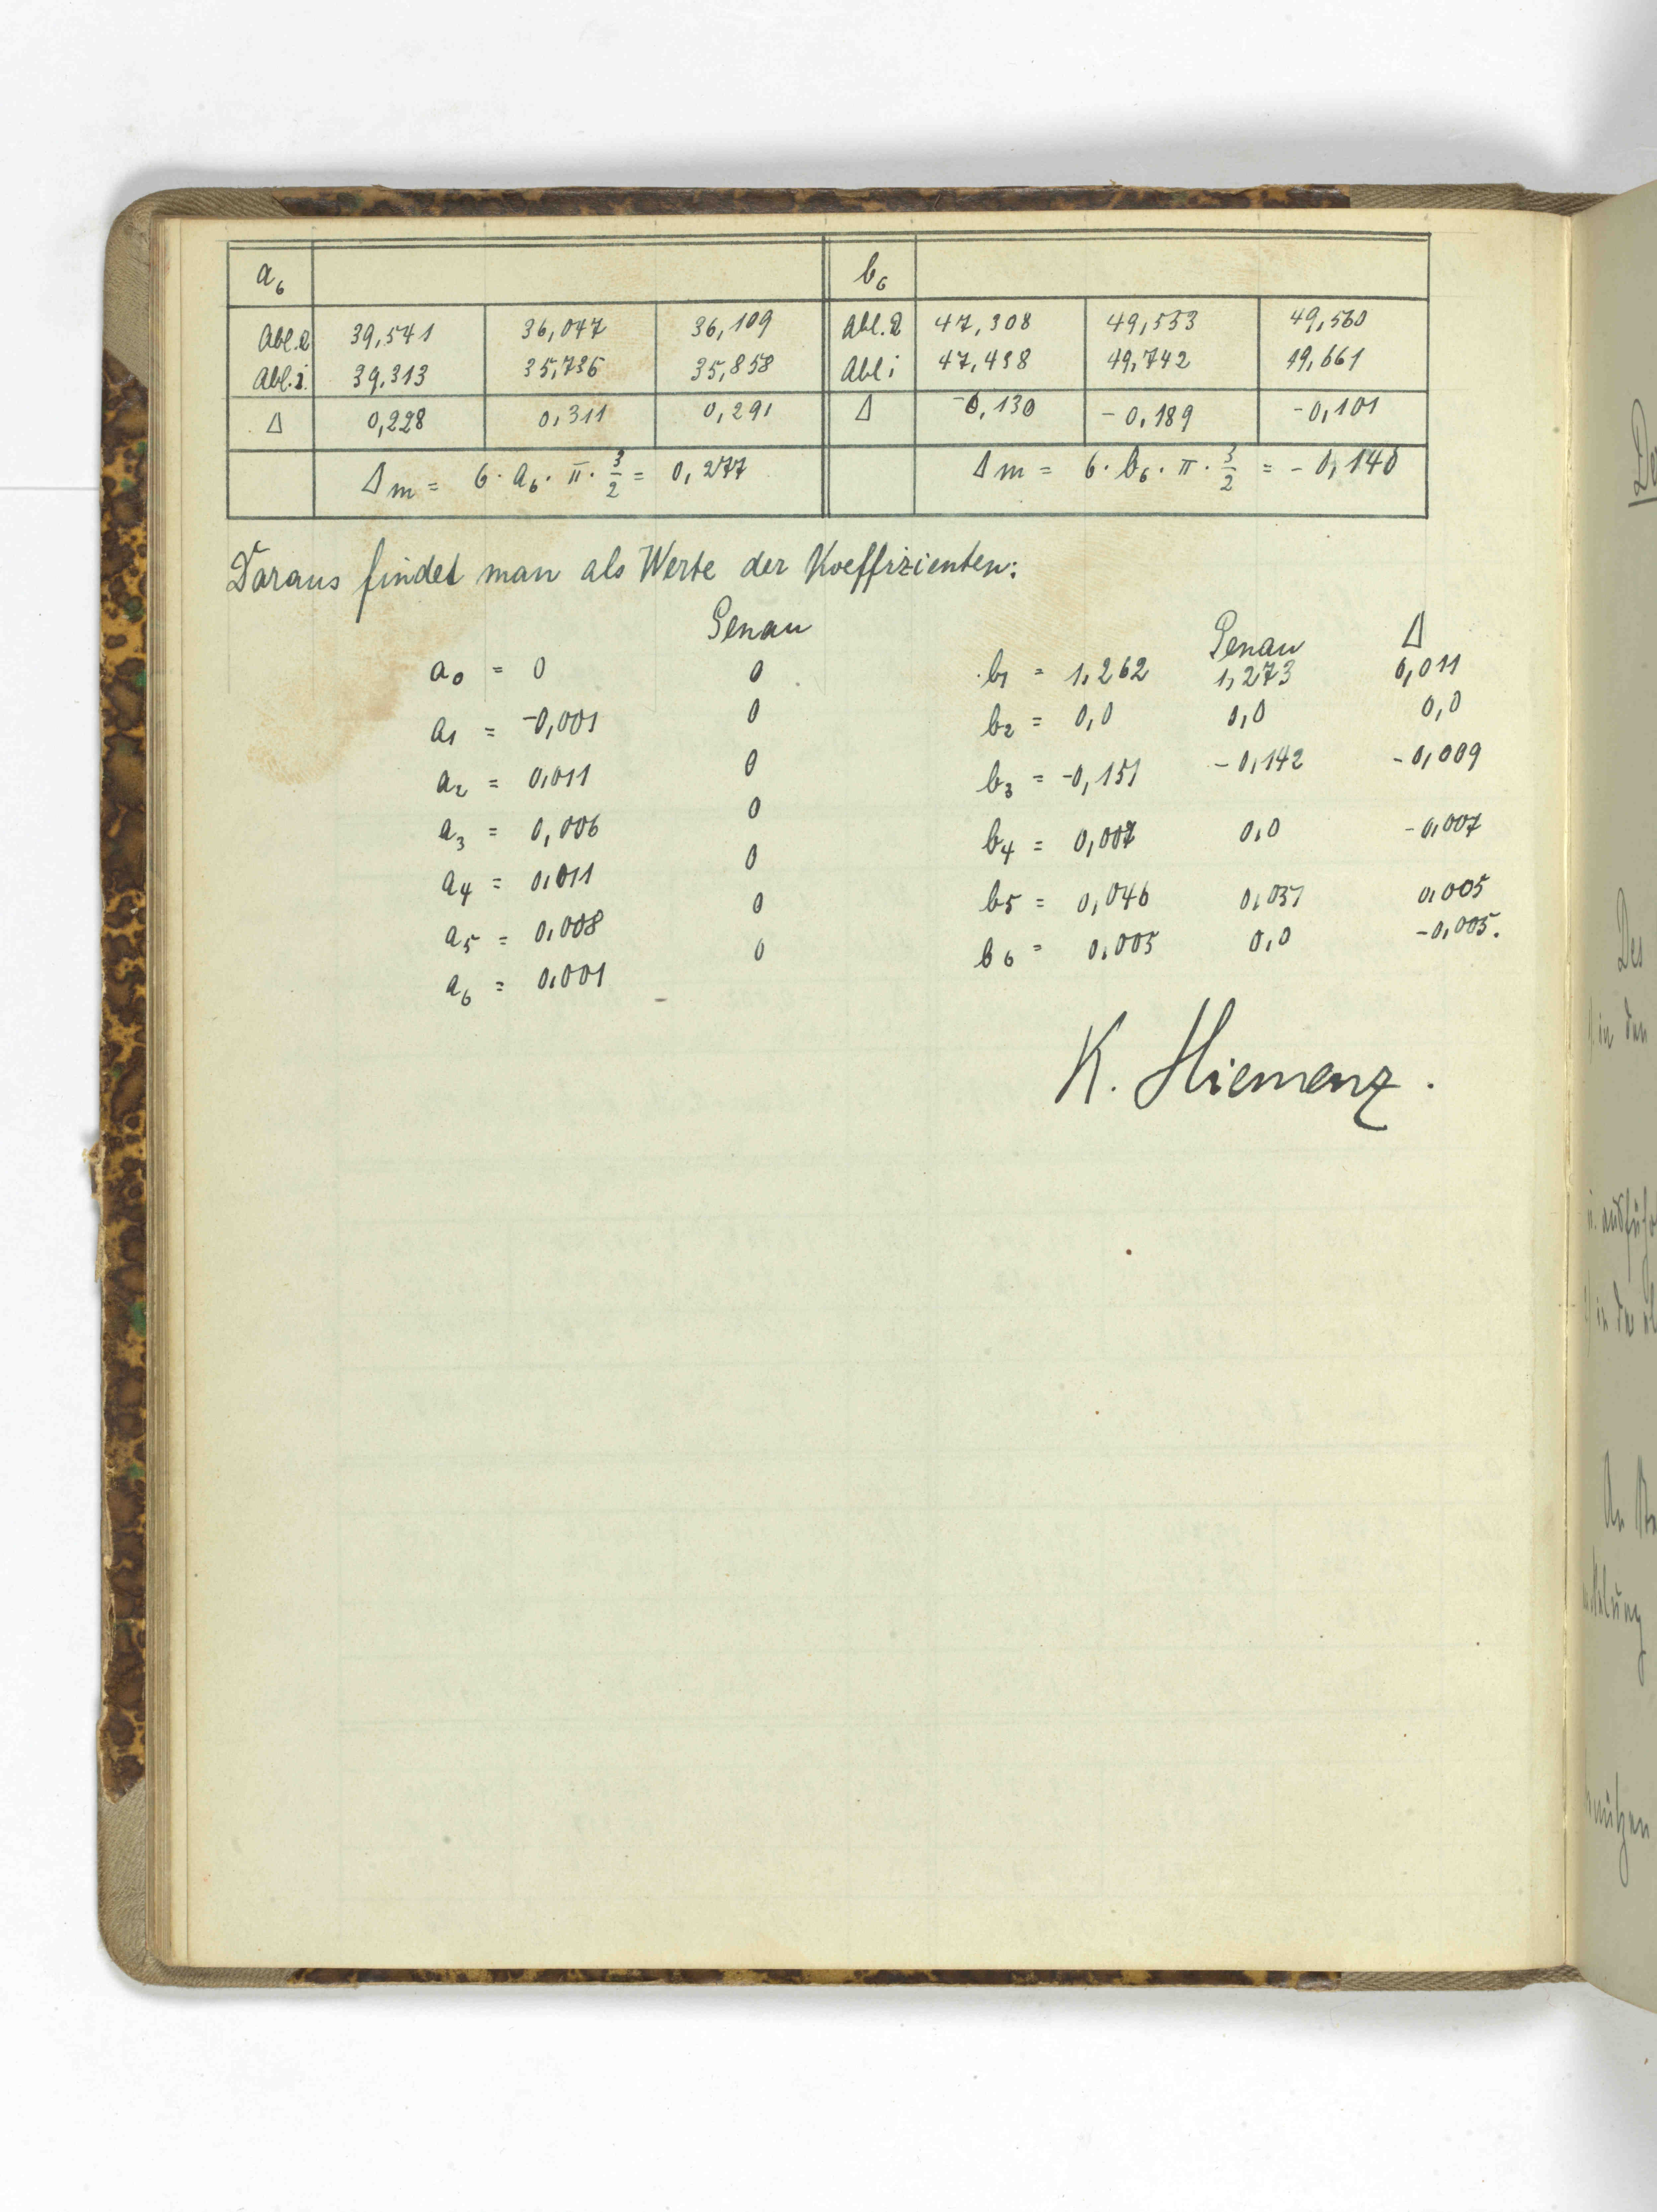 a₆ b₆
Abl. 2 39,541 36,047 36,109 Abl. 2 47,308 49,553 49,560
Abl. 1 39,313 35,736 35,858 Abl 1 47,438 49,742 49,661
Δ 0,228 0,311 0,291 Δ -0,130 -0,189 -0,101
Δm = 6·a₆·π·3/2 = 0,277 Δm = 6·b₆·π·3/2 = -0,140
Daraus findet man als Werte der Koeffizienten:
Genau Genau Δ
a₀ = 0 0 b₁ = 1,262 1,273 0,011
a₁ = -0,001 0 b₂ = 0,0 0,0 0,0
a₂ = 0,011 0 b₃ = -0,151 -0,142 -0,009
a₃ = 0,006 0 b₄ = 0,007 0,0 -0,007
a₄ = 0,011 0 b₅ = 0,046 0,051 0,005
a₅ = 0,008 0 b₆ = 0,005 0,0 -0,005.
a₆ = 0,001 0
K. Hiemenz.
Des
in den